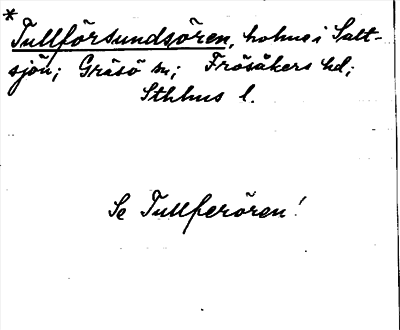 *
Tullförsundsören, holme i Salt-
sjön; Gräsö sn; Frösåkers hd;
Sthlms l.
Se Tullferören!